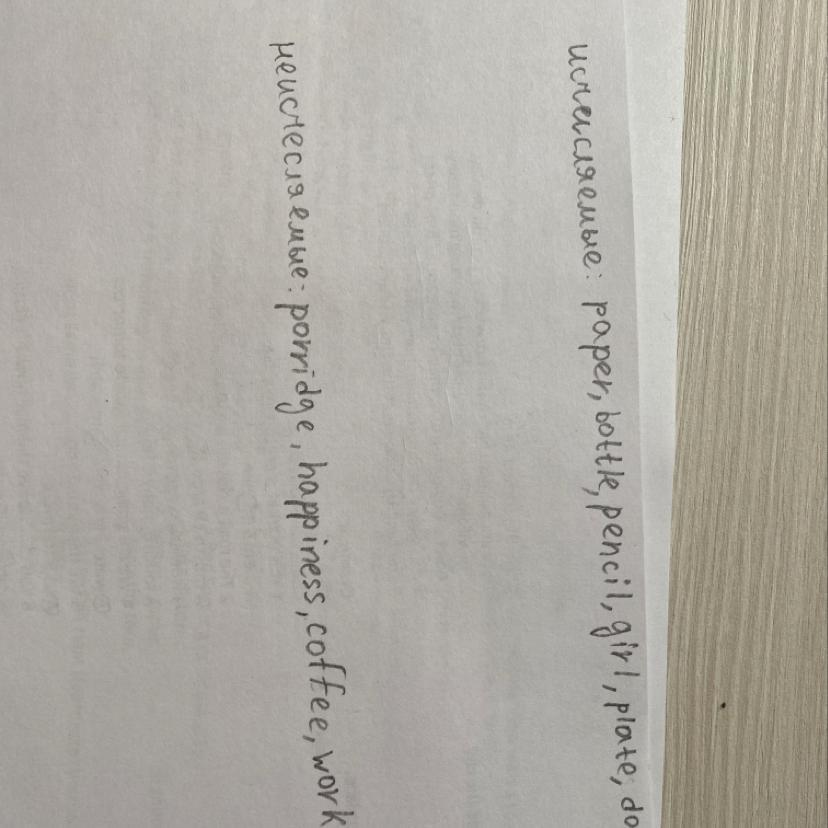 исчисляемые: paper, bottle, pencil, girl, plate, do
неисчесляемые: porridge, happiness, coffee, work